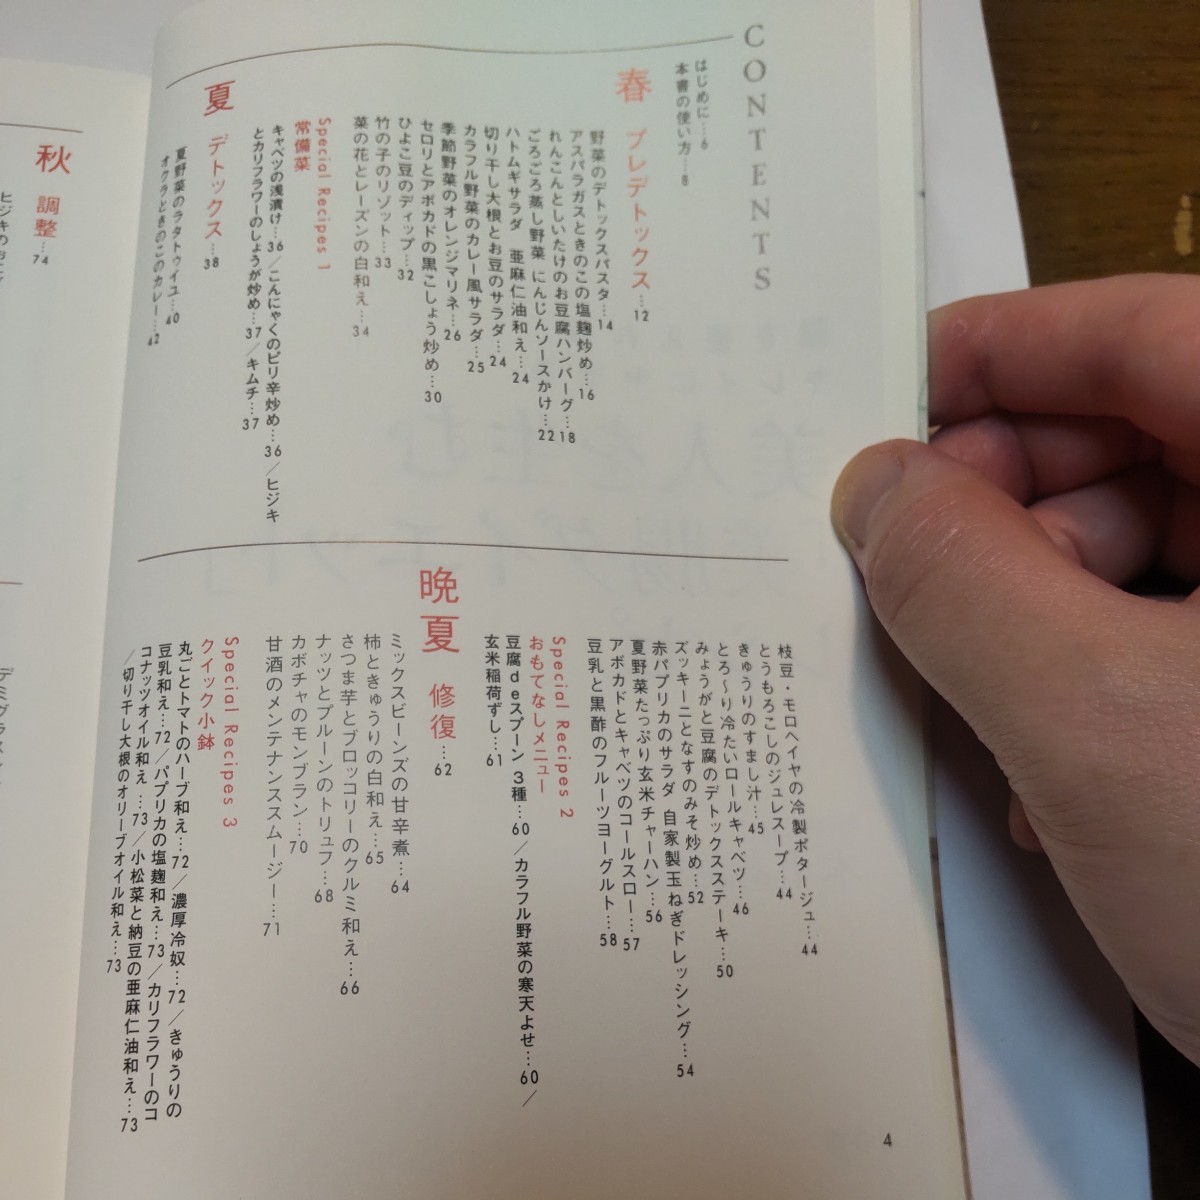 CONTENTS
はじめに…6
本書の使い方…8
春 プレデトックス…12
野菜のデトックスパスタ…14
アスパラガスときのこの塩麹炒め…16
れんこんとしいたけのお豆腐ハンバーグ…18
ごろごろ蒸し野菜 にんじんソースかけ…22
ハトムギサラダ 亜麻仁油和え…24
切り干し大根とお豆のサラダ…24
カラフル野菜のカレー風サラダ…25
季節野菜のオレンジマリネ…26
セロリとアボカドの黒こしょう炒め…30
ひよこ豆のディップ…32
竹の子のリゾット…33
菜の花とレーズンの白和え…34
Special Recipes 1
常備菜
キャベツの浅漬け…36／こんにゃくのピリ辛炒め…36／ヒジキ
とカリフラワーのしょうが炒め…37／キムチ…37
夏 デトックス…38
夏野菜のラタトゥイユ…40
オクラときのこのカレー…42
枝豆・モロヘイヤの冷製ポタージュ…44
とうもろこしのジュレスープ…44
きゅうりのすまし汁…45
とろ～り冷たいロールキャベツ…46
みょうがと豆腐のデトックスステーキ…50
ズッキーニとなすのみそ炒め…52
赤パプリカのサラダ 自家製玉ねぎドレッシング…54
夏野菜たっぷり玄米チャーハン…56
アボカドとキャベツのコールスロー…57
豆乳と黒酢のフルーツヨーグルト…58
Special Recipes 2
おもてなしメニュー
豆腐deスプーン 3種…60／カラフル野菜の寒天よせ…60／
玄米稲荷ずし…61
晩夏 修復…62
ミックスビーンズの甘辛煮…64
柿ときゅうりの白和え…65
さつま芋とブロッコリーのクルミ和え…66
ナッツとプルーンのトリュフ…68
カボチャのモンブラン…70
甘酒のメンテナンススムージー…71
Special Recipes 3
クイック小鉢
丸ごとトマトのハーブ和え…72／濃厚冷奴…72／きゅうりの
豆乳和え…72／パプリカの塩麹和え…73／カリフラワーのコ
コナッツオイル和え…73／小松菜と納豆の亜麻仁油和え…73
／切り干し大根のオリーブオイル和え…73
4
秋 調整…74